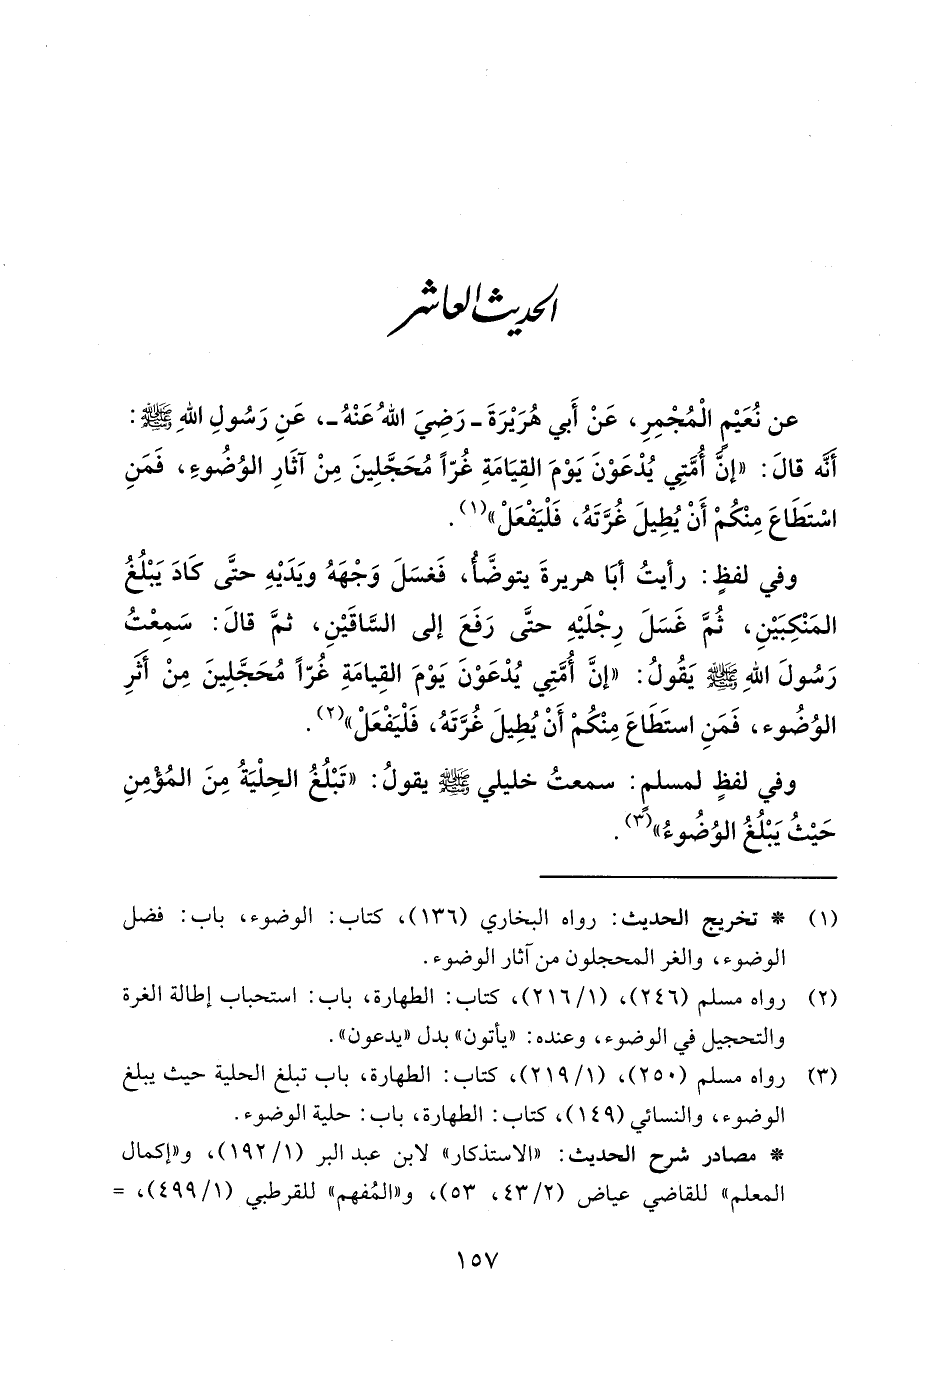 الحديث العاشر
عن نُعَيْمٍ الْمُجْمِرِ، عَنْ أَبي هُرَيْرَةَ ـ رَضِيَ اللهُ عَنْهُ ـ، عَنِ رَسُولِ اللهِ ﷺ:
أَنَّه قالَ: «إنَّ أُمَّتِي يُدْعَوْنَ يَوْمَ القِيَامَةِ غُرّاً مُحَجَّلِينَ مِنْ آثَارِ الوُضُوءِ، فَمَنِ
اسْتَطَاعَ مِنْكُمْ أَنْ يُطِيلَ غُرَّتَهُ، فَلْيَفْعَلْ»(١).
وفي لفظٍ: رأيتُ أبَا هريرةَ يتوضَّأُ، فَغسَلَ وَجْهَهُ ويَدَيْهِ حتَّى كَادَ يَبْلُغُ
المَنْكِبَيْنِ، ثُمَّ غَسَلَ رِجْلَيْهِ حتَّى رَفَعَ إلى السَّاقَيْنِ، ثمَّ قالَ: سَمِعْتُ
رَسُولَ اللهِ ﷺ يَقُولُ: «إنَّ أُمَّتِي يُدْعَوْنَ يَوْمَ القِيامَةِ غُرّاً مُحَجَّلِينَ مِنْ أَثَرِ
الوُضُوء، فَمَنِ استَطَاعَ مِنْكُمْ أَنْ يُطِيلَ غُرَّتَهُ، فَلْيَفْعَلْ»(٢).
وفي لفظٍ لمسلمٍ: سمعتُ خليلي ﷺ يقولُ: «تَبْلُغُ الحِلْيَةُ مِنَ المُؤْمِنِ
حَيْثُ يَبْلُغُ الوُضُوءُ»(٣).
(١) * تخريج الحديث: رواه البخاري (١٣٦)، كتاب: الوضوء، باب: فضل
الوضوء، والغر المحجلون من آثار الوضوء.
(٢) رواه مسلم (٢٤٦)، (١/ ٢١٦)، كتاب: الطهارة، باب: استحباب إطالة الغرة
والتحجيل في الوضوء، وعنده: «يأتون» بدل «يدعون».
(٣) رواه مسلم (٢٥٠)، (١/ ٢١٩)، كتاب: الطهارة، باب تبلغ الحلية حيث يبلغ
الوضوء، والنسائي (١٤٩)، كتاب: الطهارة، باب: حلية الوضوء.
* مصادر شرح الحديث: «الاستذكار» لابن عبد البر (١/ ١٩٢)، و«إكمال
المعلم» للقاضي عياض (٢/ ٤٣، ٥٣)، و«المُفهم» للقرطبي (١/ ٤٩٩)، =
١٥٧